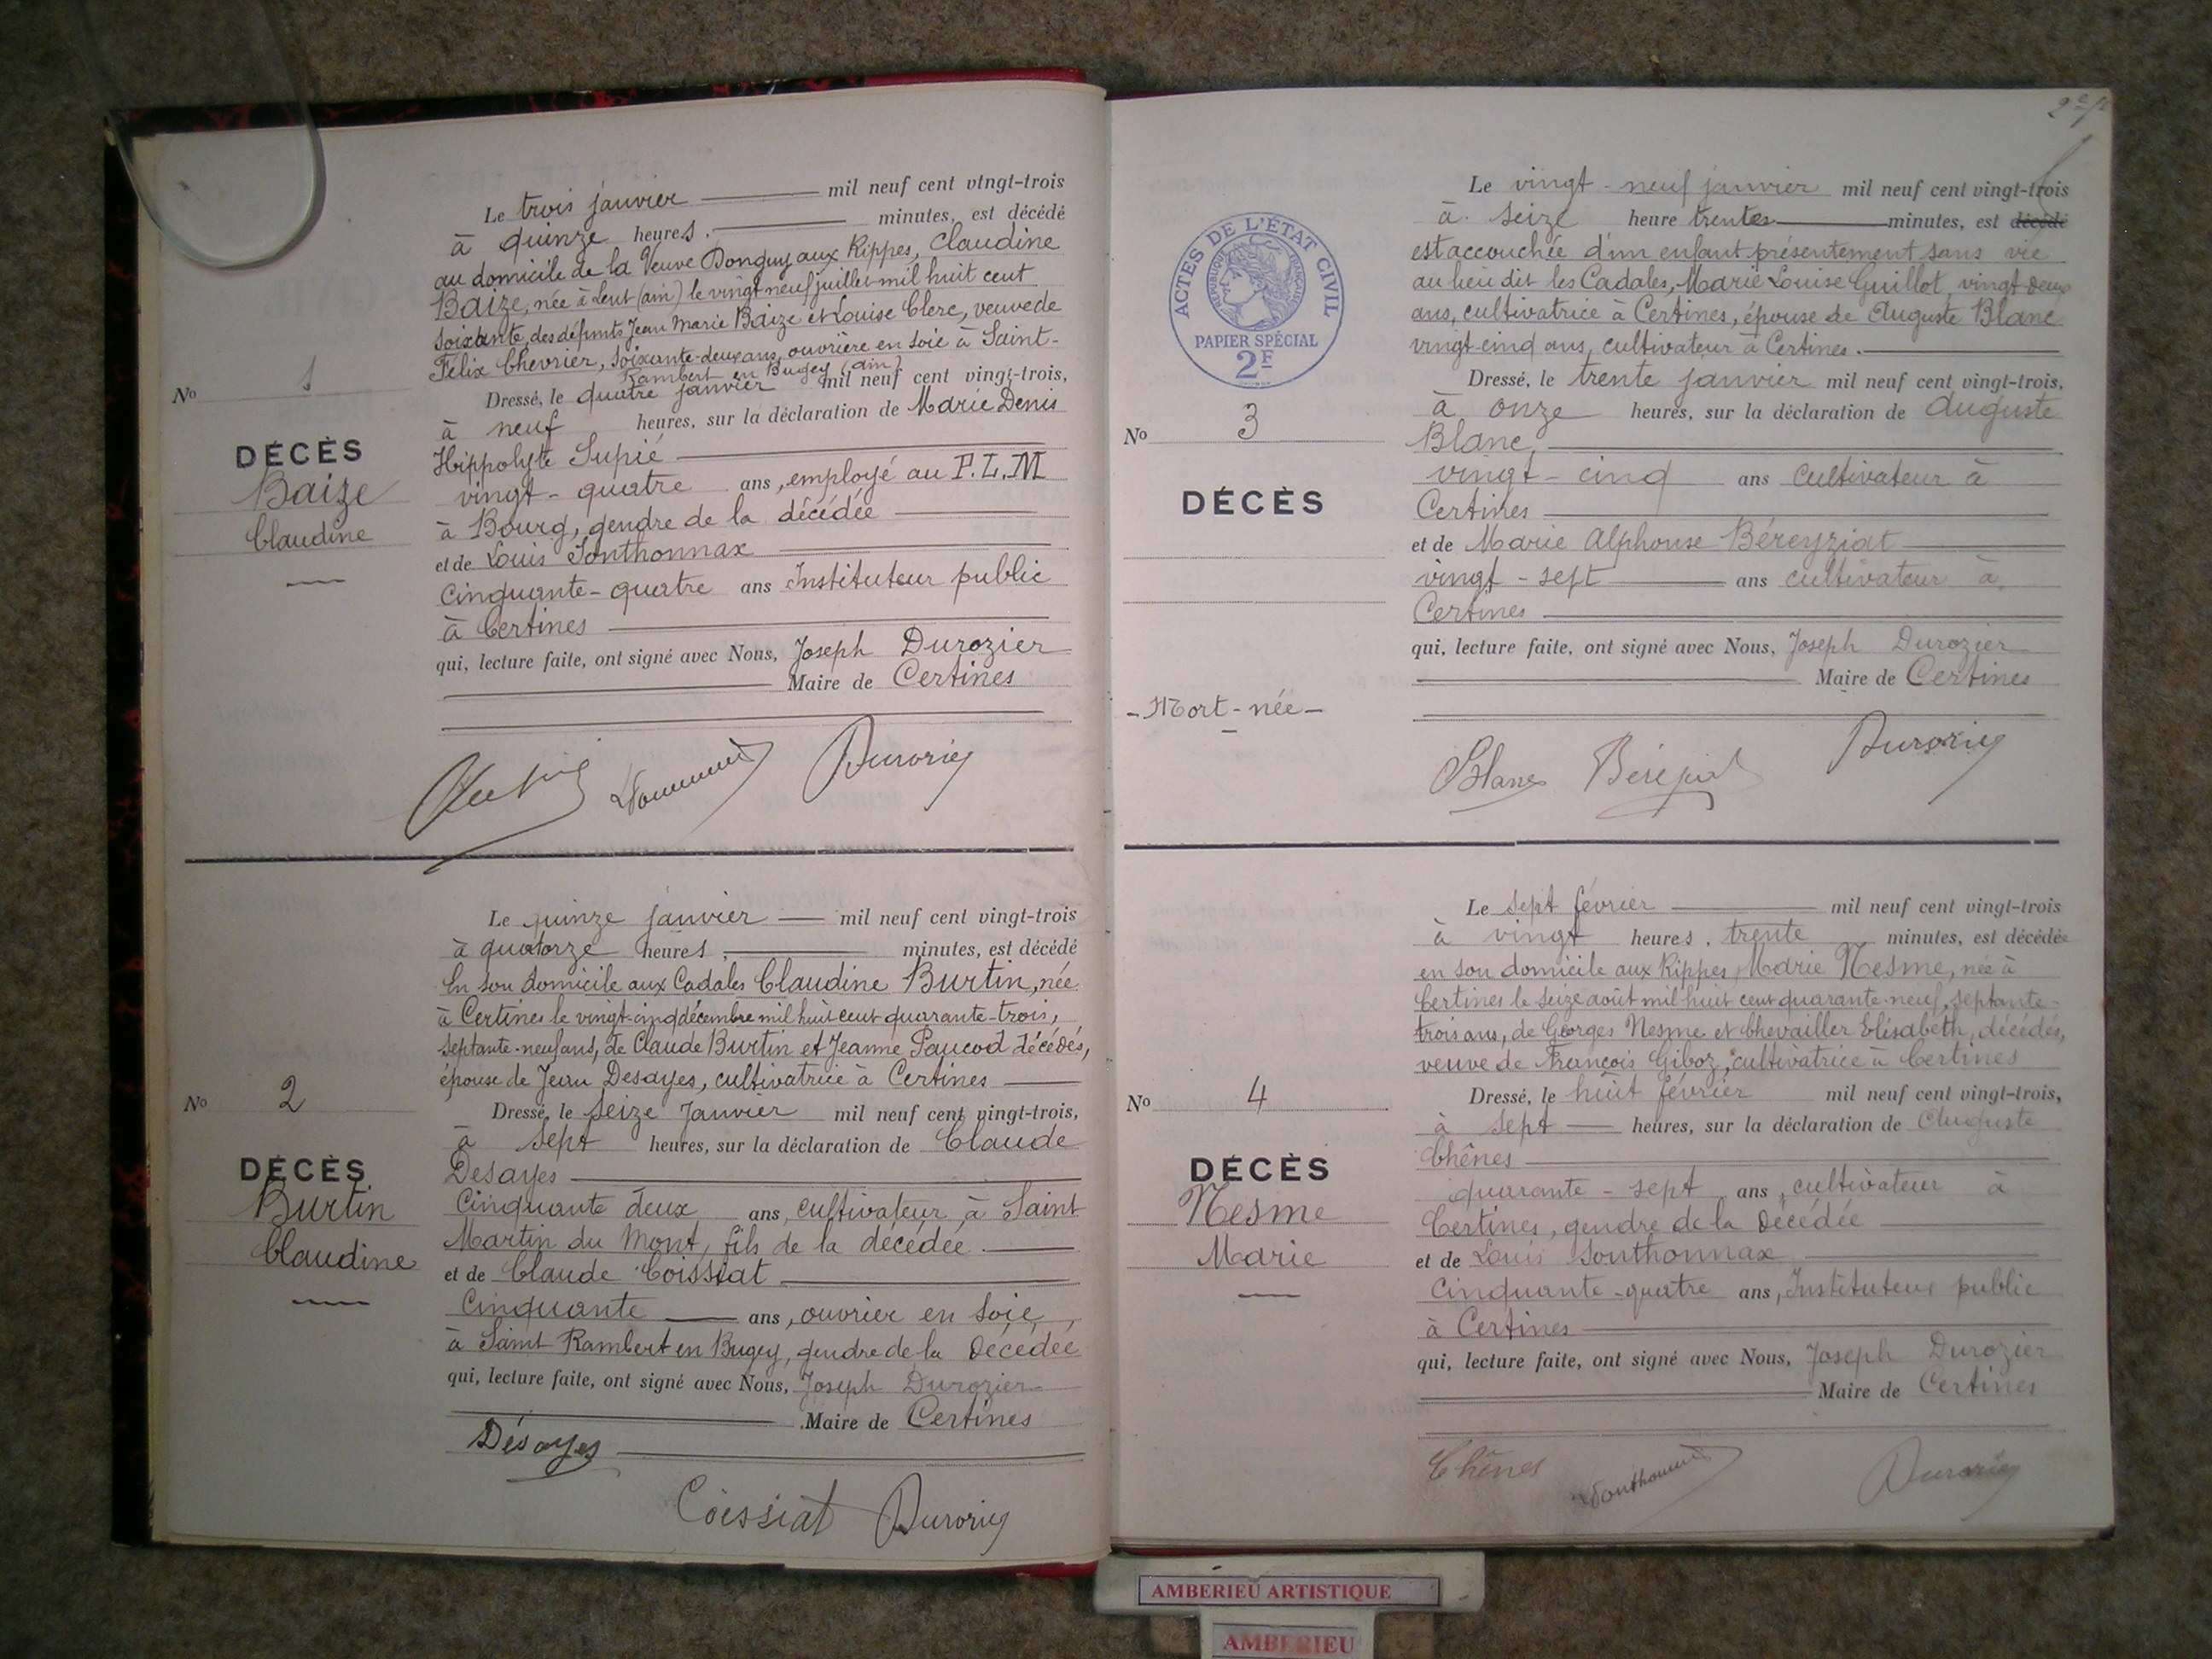 Le trois janvier mil neuf cent vingt-trois
à quinze heures. minutes, est décédé
au domicile de la Veuve Donguy aux Rippes, Claudine
Baize, née à Lent (ain) le vingt neuf juillet mil huit cent
soixante, des défunts Jean Marie Baize et Louise Clerc, veuve de
Félix Chevrier, soixante-deux ans, ouvrière en soie à Saint-
Rambert en Bugey (ain)
Dressé, le quatre janvier mil neuf cent vingt-trois,
à neuf heures, sur la déclaration de Marie Denis
Hippolyte Supié
vingt-quatre ans, employé au P.L.M
à Bourg, gendre de la décédée
et de Louis Sonthonnax
Cinquante-quatre ans Instituteur public
à Certines
qui, lecture faite, ont signé avec Nous, Joseph Durozier
Maire de Certines
No 1
DÉCÈS
Baize
Claudine
Le quinze janvier mil neuf cent vingt-trois
à quatorze heures, minutes, est décédé
En son domicile aux Cadales Claudine Burtin, née
à Certines le vingt-cinq décembre mil huit cent quarante-trois,
septante-neuf ans, de Claude Burtin et Jeanne Paucod décédés,
épouse de Jean Desayes, cultivatrice à Certines
Dressé, le seize Janvier mil neuf cent vingt-trois,
à sept heures, sur la déclaration de Claude
Desayes
Cinquante deux ans, cultivateur à Saint
Martin du Mont, fils de la décédée.
et de Claude Coissiat
Cinquante ans, ouvrier en soie,
à Saint Rambert en Bugey, gendre de la décédée
qui, lecture faite, ont signé avec Nous, Joseph Durozier
Maire de Certines
Désayes
Coissiat Durozier
No 2
DÉCÈS
Burtin
Claudine
ACTES DE L'ÉTAT CIVIL
RÉPUBLIQUE FRANÇAISE
PAPIER SPÉCIAL
2F
Le vingt-neuf janvier mil neuf cent vingt-trois
à seize heure trente minutes, est décédé
est accouchée d'un enfant présentement sans vie
au lieu dit les Cadales, Marie Louise Guillot, vingt-deux
ans, cultivatrice à Certines, épouse de Auguste Blanc
vingt-cinq ans, cultivateur à Certines.
Dressé, le trente janvier mil neuf cent vingt-trois,
à onze heures, sur la déclaration de Auguste
Blanc,
vingt-cinq ans cultivateur à
Certines
et de Marie Alphonse Béreyziat
vingt-sept ans cultivateur à
Certines
qui, lecture faite, ont signé avec Nous, Joseph Durozier
Maire de Certines
Blanc Béreyziat Durozier
No 3
DÉCÈS
-Mort-née-
Le sept février mil neuf cent vingt-trois
à vingt heures. trente minutes, est décédée
en son domicile aux Rippes, Marie Nesme, née à
Certines le seize août mil huit cent quarante-neuf, septante-
trois ans, de Georges Nesme et Chevailler Elisabeth, décédés,
veuve de François Giboz, cultivatrice à Certines
Dressé, le huit février mil neuf cent vingt-trois,
à sept heures, sur la déclaration de Auguste
Chênes
quarante-sept ans, cultivateur à
Certines, gendre de la décédée
et de Louis Sonthonnax
Cinquante-quatre ans, Instituteur public
à Certines
qui, lecture faite, ont signé avec Nous, Joseph Durozier
Maire de Certines
Chênes Sonthonnax Durozier
No 4
DÉCÈS
Nesme
Marie
AMBERIEU ARTISTIQUE
AMBERIEU